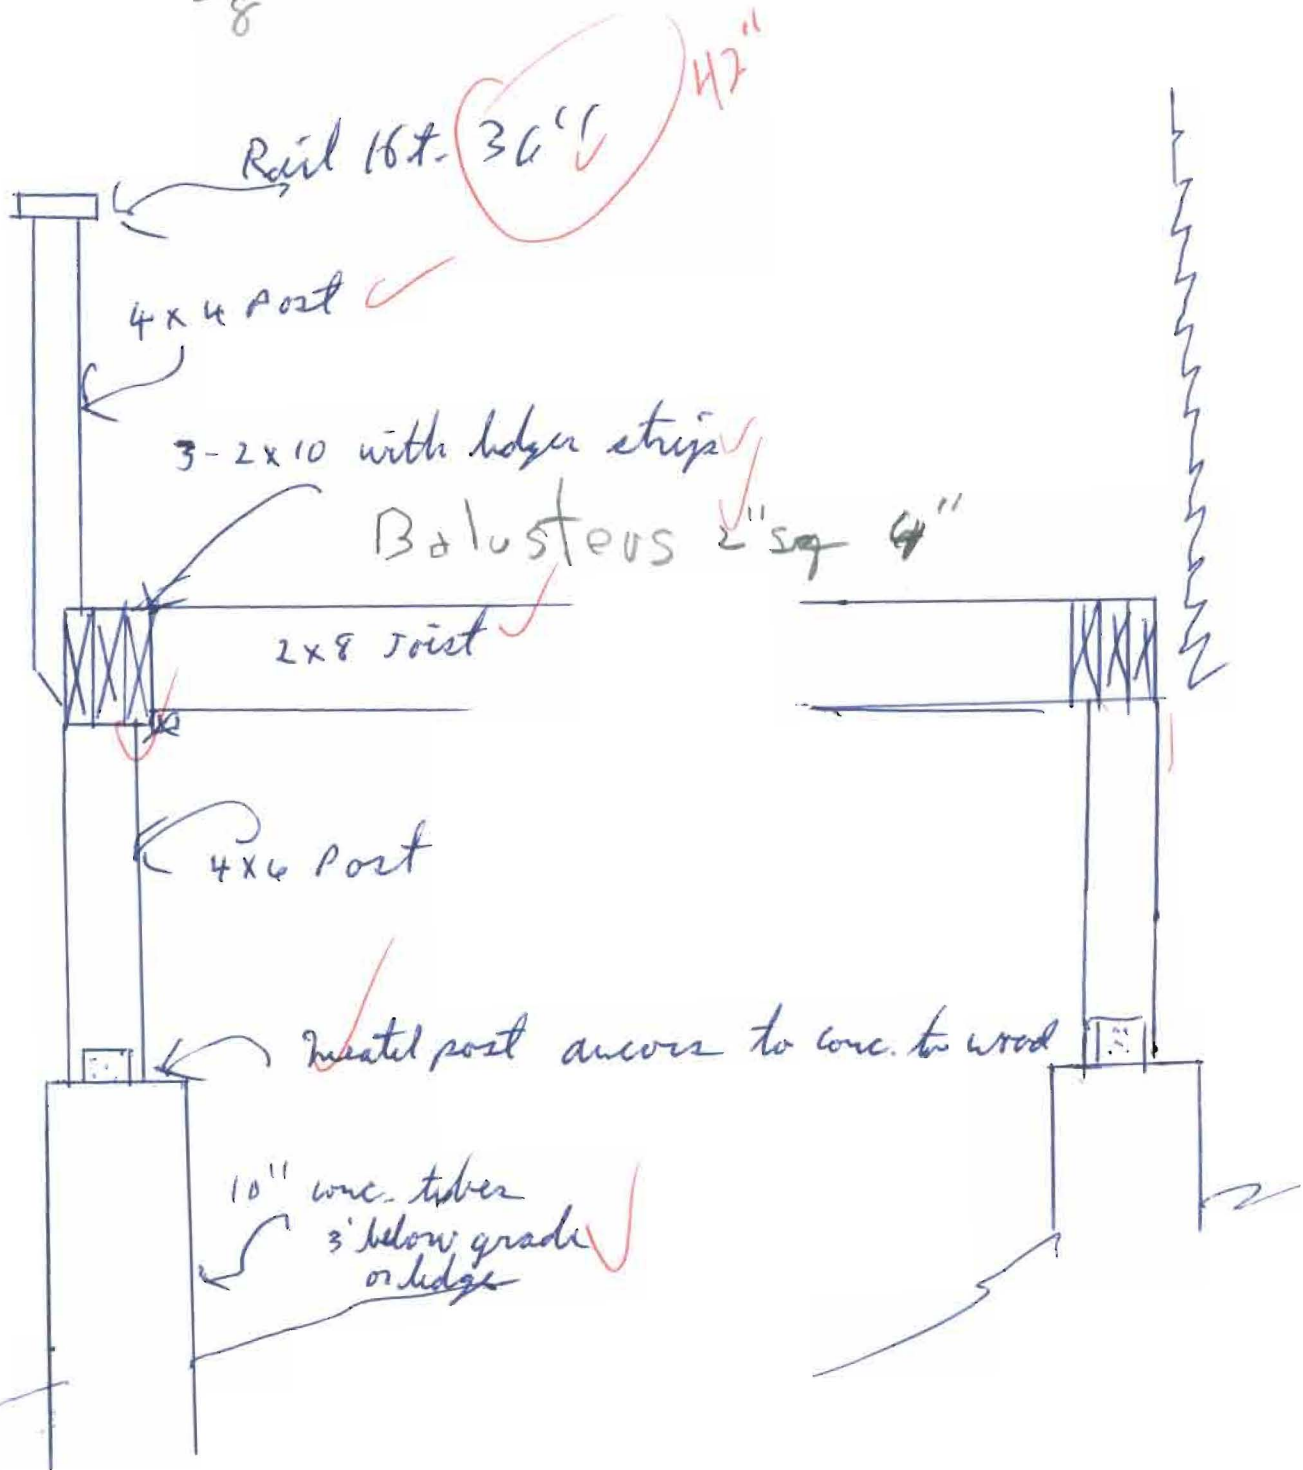 8
42"
Rail Ht. 36"
4x4 Post
3-2x10 with ledger strip
Balusters 2" sq 4"
2x8 Joist
4x6 Post
post ancors to conc. to wood
10" conc. tubes
3' below grade
or ledge